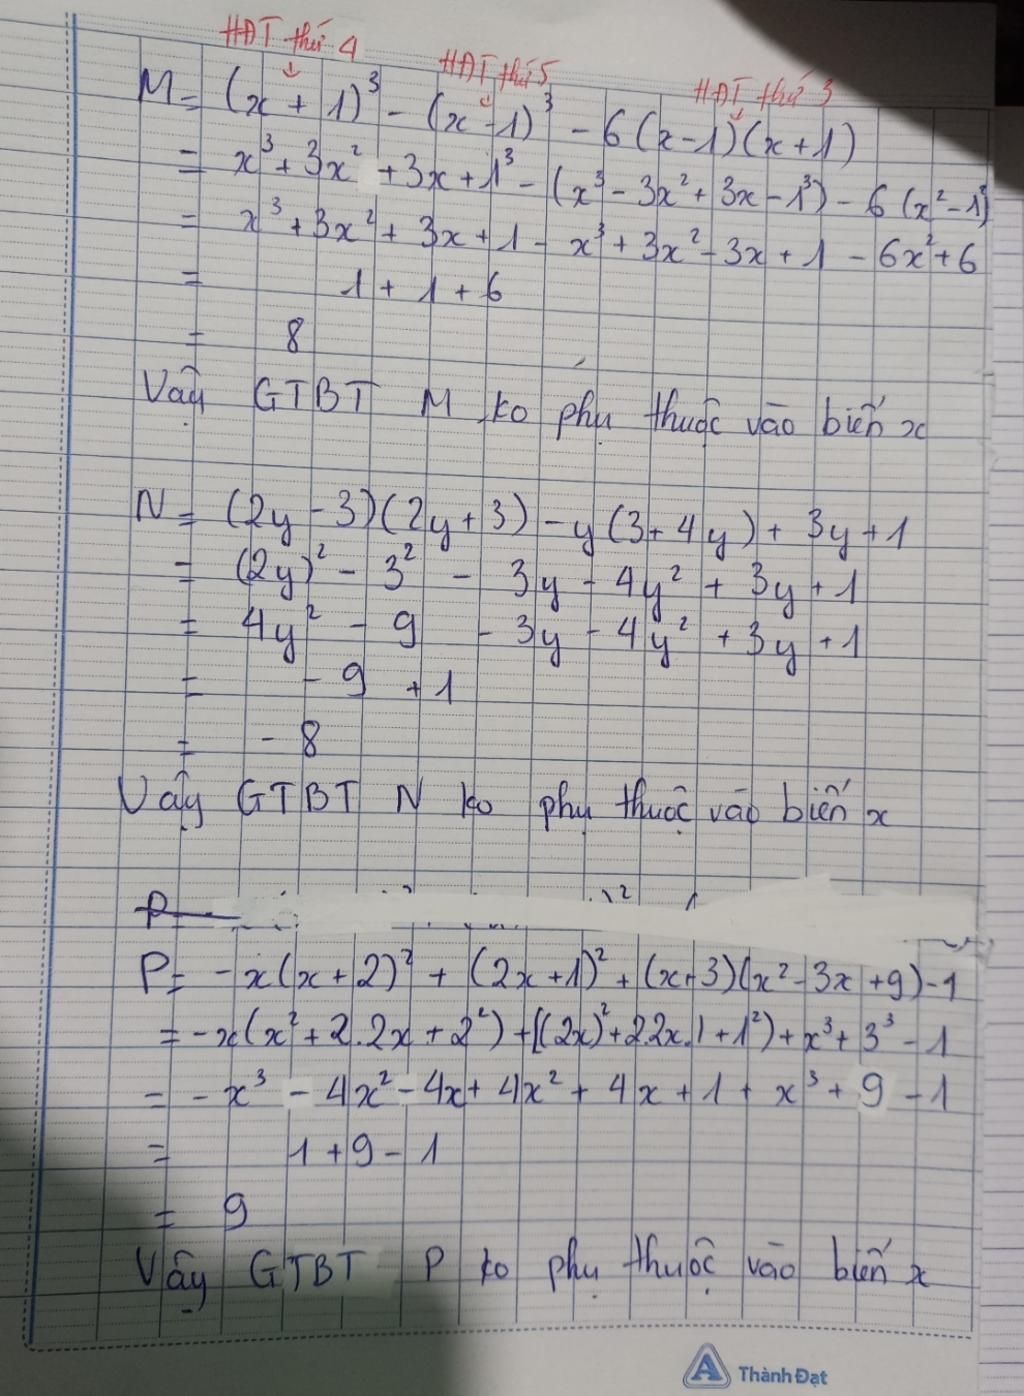 HĐT thứ 4 HĐT thứ 5 HĐT thứ 3
M = (x + 1)³ - (x - 1)³ - 6(x - 1)(x + 1)
= x³ + 3x² + 3x + 1³ - (x³ - 3x² + 3x - 1³) - 6(x² - 1²)
= x³ + 3x² + 3x + 1 - x³ + 3x² - 3x + 1 - 6x² + 6
= 1 + 1 + 6
= 8
Vậy GTBT M ko phụ thuộc vào biến x
N = (2y - 3)(2y + 3) - y(3 + 4y) + 3y + 1
= (2y)² - 3² - 3y - 4y² + 3y + 1
= 4y² - 9 - 3y - 4y² + 3y + 1
= - 9 + 1
= - 8
Vậy GTBT N ko phụ thuộc vào biến x
P
P = - x(x + 2)² + (2x + 1)² + (x + 3)(x² - 3x + 9) - 1
= - x(x² + 2.2x + 2²) + [(2x)² + 2.2x.1 + 1²) + x³ + 3³ - 1
= - x³ - 4x² - 4x + 4x² + 4x + 1 + x³ + 9 - 1
= 1 + 9 - 1
= 9
Vậy GTBT P ko phụ thuộc vào biến x
Thành Đạt